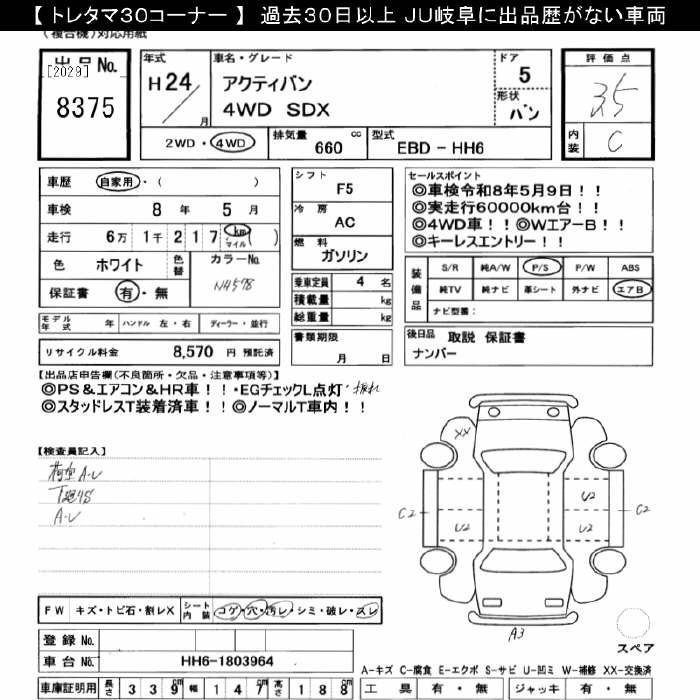 【 トレタマ30コーナー 】 過去30日以上 JU岐阜に出品歴がない車両
(複合機)対応用紙
出品No.
[2029]
8375
年式
H 24
月
車名・グレード
アクティバン
4WD SDX
ドア
5
形状
バン
2WD・4WD
排気量
660 cc
型式
EBD - HH6
評価点
3.5
内装
C
車歴 自家用・( )
車検 8 年 5 月
走行 6万 1千 2 1 7 km マイル ( )
色 ホワイト 色替 カラーNo. NH578
保証書 有・無
モデル年式 年 ハンドル 左・右 ディーラー・並行
リサイクル料金 8,570 円 預託済
シフト
F5
冷房
AC
燃料
ガソリン
乗車定員 4 名
積載量 kg
総重量 kg
書類期限
月 日
セールスポイント
◎車検令和8年5月9日!!
◎実走行60000km台!!
◎4WD車!!◎WエアーB!!
◎キーレスエントリー!!
装備品
S/R 純A/W P/S P/W ABS
純TV 純ナビ 革シート 外ナビ エアB
ナビ型番:
後日品 取説 保証書
ナンバー
【出品店申告欄(不良箇所・欠品・注意事項等)】
◎PS&エアコン&HR車!!・EGチェックL点灯・振れ
◎スタッドレスT装着済車!!・◎ノーマルT車内!!
【検査員記入】
荷室 A-U
A-U
XX
U2
U2
U2
U2
C2
C2
A3
スペア
FW キズ・トビ石・割レX シート内装 コゲ・穴・汚レ・シミ・破レ・スレ
登録No.
車台No. HH6-1803964
A-キズ C-腐食 E-エクボ S-サビ U-凹ミ W-補修 XX-交換済
車庫証明用 長さ 339 幅 147 高さ 188
工具 有・無 ジャッキ 有・無